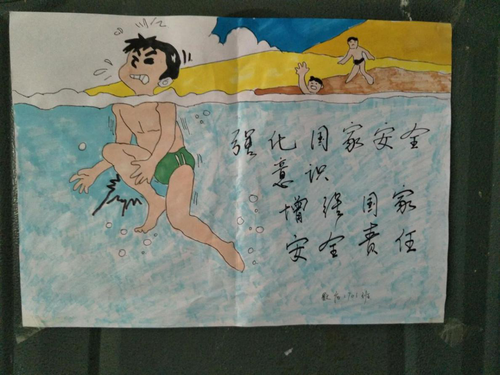 强化国家安全
意识
增强国家
安全责任